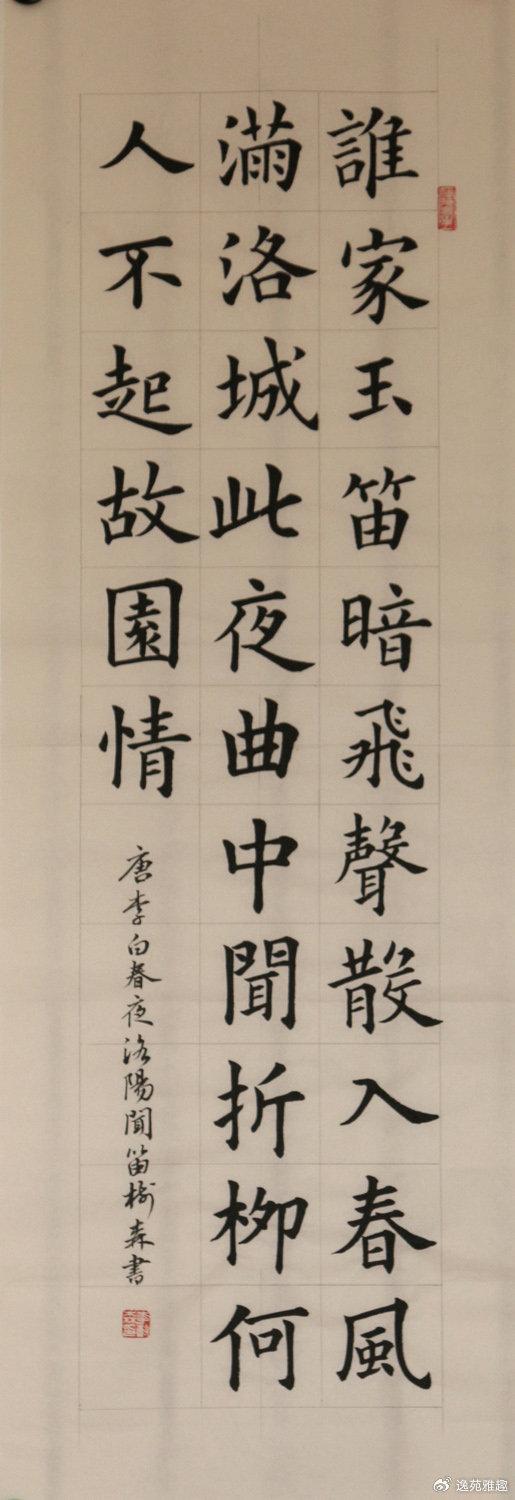 誰家玉笛暗飛聲散入春風
滿洛城此夜曲中聞折柳何
人不起故園情
唐李白春夜洛陽聞笛樹森書
逸苑雅趣